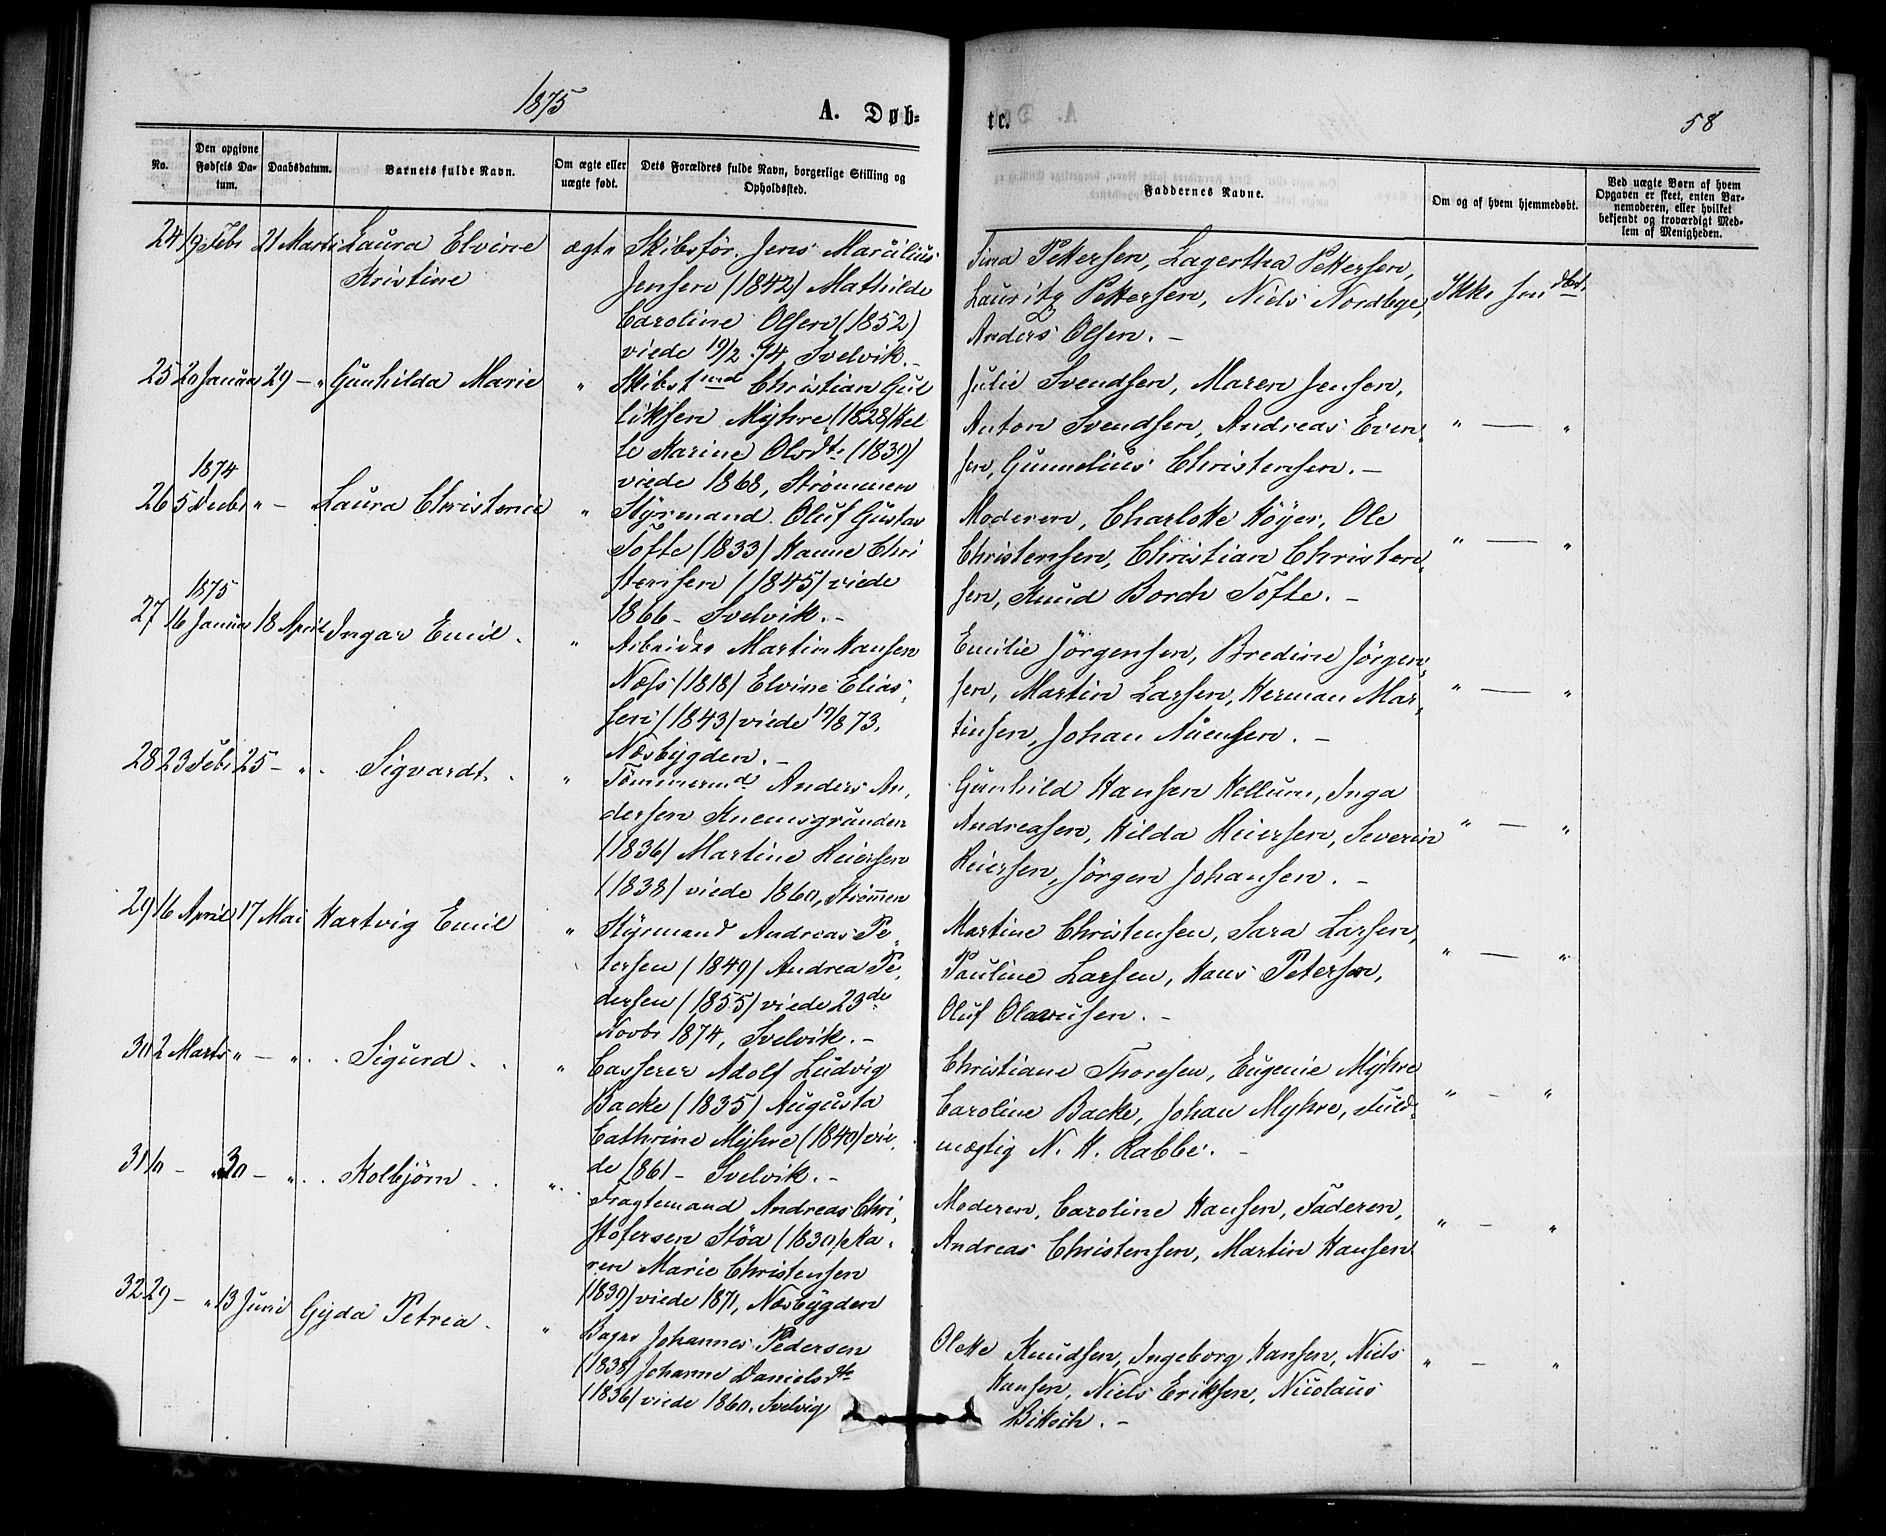 1875
A. Døb-
te.
58
No.
Den opgivne Fødsels Da-tum.
Daabsdatum.
Barnets fulde Navn.
Om ægte eller uægte født.
Dets Forældres fulde Navn, borgerlige Stilling og Opholdssted.
Faddernes Navne.
Om og af hvem hjemmedøbt.
Ved uægte Børn af hvem Opgaven er skeet, enten Bar-nemoderen, eller hvilket bekjendt og troværdigt Med-lem af Menigheden.
24 19 Febr 21 Marts Laura Elvine ægte Skibsför. Jens Marälius
Kristine Jensen (1842) Mathilde
Caroline Olsen (1852)
viede 19/2 74, Svelvik. -
Tina Pettersen, Lagertha Pettersen,
Lauritz Pettersen, Niels Nordbye, Ikke hmdbt.
Anders Olsen. -
25 20 Januar 29 - " Gunhilda Marie " Skibstmd Christian Gul
liksen Myhre (1828) Hel
le Karine Olsdtr (1839)
viede 1868, Strømmen
Julie Svendsen, Maren Jensen,
Anton Svendsen, Andreas Even, " — "
sen, Gunnelius Christensen. -
1874
26 5 Decbr " - " Laura Christence " Styrmand Oluf Gustav
Tofte (1833) Hanne Chri
stensen (1845) viede
1866 - Svelvik. -
Moderen, Charlotte Höyer, Ole
Christensen, Christian Christen, " — "
sen, Knud Borch Tofte. -
1875
27 16 Januar 18 April Ingar Emil. " Arbeider Martin Hansen
Næss (1818) Elvine Elias,
sen (1843) viede 19/8 73.
Næsbygden. -
Emilie Jörgensen, Bredine Jörgen,
sen, Martin Larsen, Herman Mar, " — "
tinsen, Johan Auensen. -
28 23 Febr 25 - " . Sigvardt. . " Tömmermd Anders An,
dersen Knemsgrunden
(1836) Martine Reiersen
(1838) viede 1860, Strömmen
Gunhild Hansen Kellum, Inga
Andreasen, Hilda Reiersen, Severin " — "
Reiersen, Jörgen Johansen. -
29 16 April 17 Mai Hartvig Emil " Styrmand Andreas Pe,
tersen (1849) Andrea Pe,
dersen (1855) viede 23de
Novbr 1874, Svelvik. -
Martine Christensen, Sara Larsen,
Pauline Larsen, Hans Petersen, " — "
Oluf Olavusen. -
30 2 Marts " - " . . Sigurd . . " Casserer Adolf Ludvig
Backe (1835) Augusta
Cathrine Myhre (1840) vie,
de 1861 - Svelvik. -
Christiane Thoresen, Eugenie Myhre
Caroline Backe, Johan Myhre, Fuld, " - "
mægtig N. H. Rabbe. -
31 16 - " 30 - " . . Kolbjörn . . " Fragtemand Andreas Chri,
stofersen Stöa (1830) Ka,
ren Marie Christensen
(1839) viede 1871, Næsbygden
Moderen, Caroline Hansen, Faderen,
Andreas Christensen, Martin Hansen " - "
32 29 - " 13 Juni Gyda Petrea . " Bager Johannes Pedersen
(1838) Johanne Danielsdtr
(1836) viede 1860. Svelvig
Olette Knudsen, Ingeborg Hansen, Niels " - "
Hansen, Niels Eriksen, Nicolaus